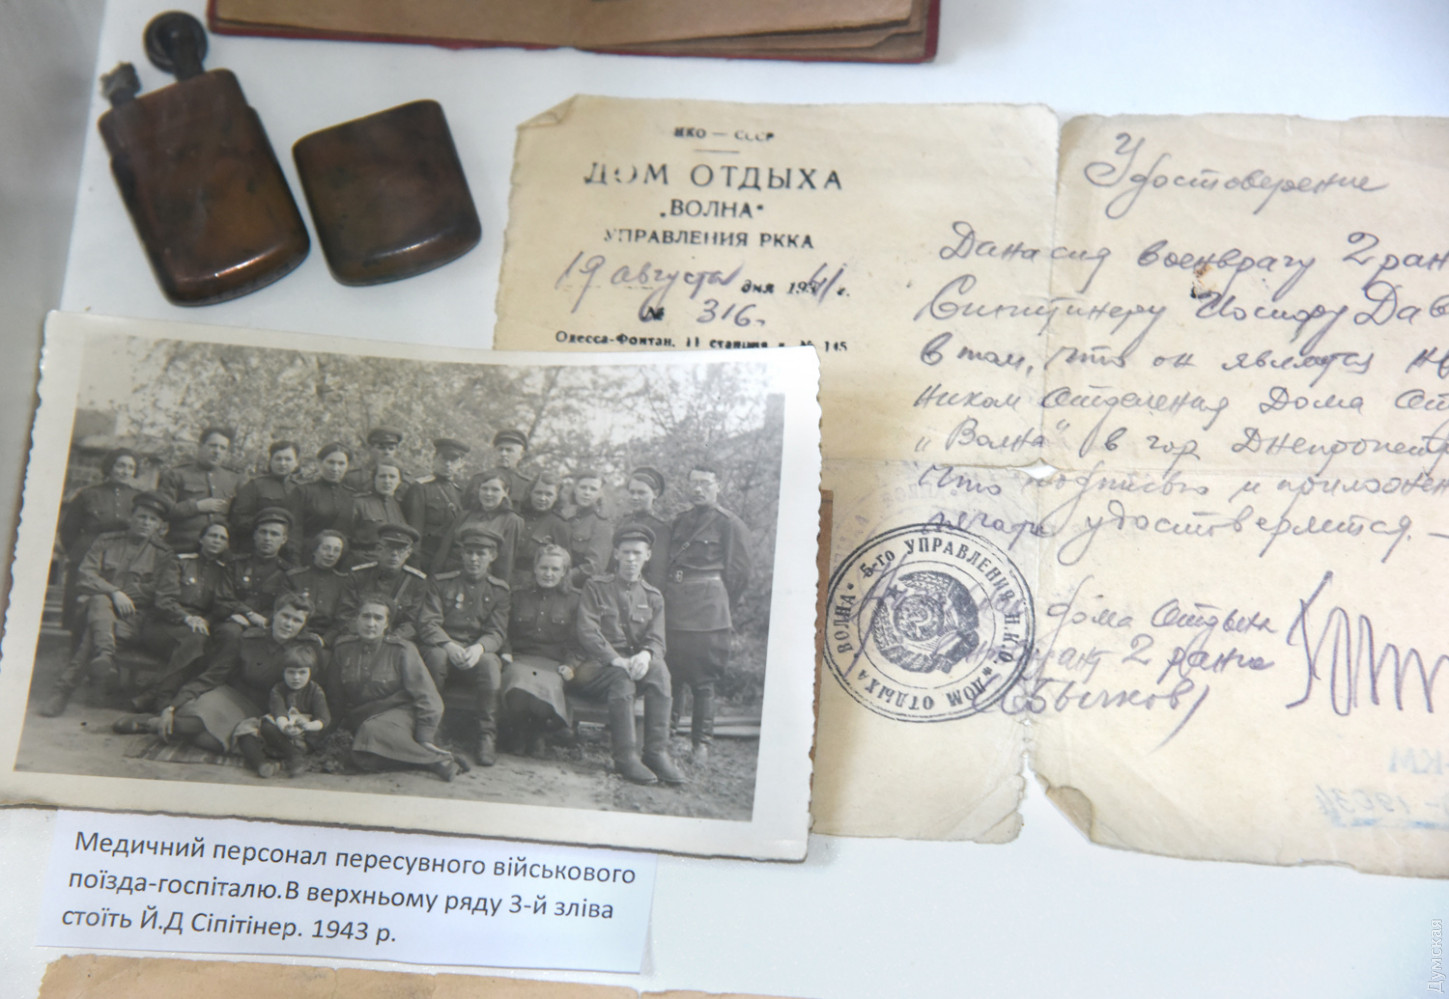 НКО — СССР
ДОМ ОТДЫХА
„ВОЛНА“
УПРАВЛЕНИЯ РККА
19 августа дня 1941 г.
№ 316.
Одесса-Фонтан, 11 станция № 145
Удостоверение
Дана сия военврачу 2 ран
Сипитинеру Иосифу Дав
в том, что он является на
ником отделения Дома От
„Волна“ в гор Днепропетр
Что подписью и приложен
печати удостоверяется. —
Дома Отдыха
2 ранга
(Бычков)
ВОЛНА * 5-го УПРАВЛЕНИЯ Н.К.О. * ДОМ ОТДЫХА
Медичний персонал пересувного військового
поїзда-госпіталю.В верхньому ряду 3-й зліва
стоїть Й.Д Сіпітінер. 1943 р.
Думская